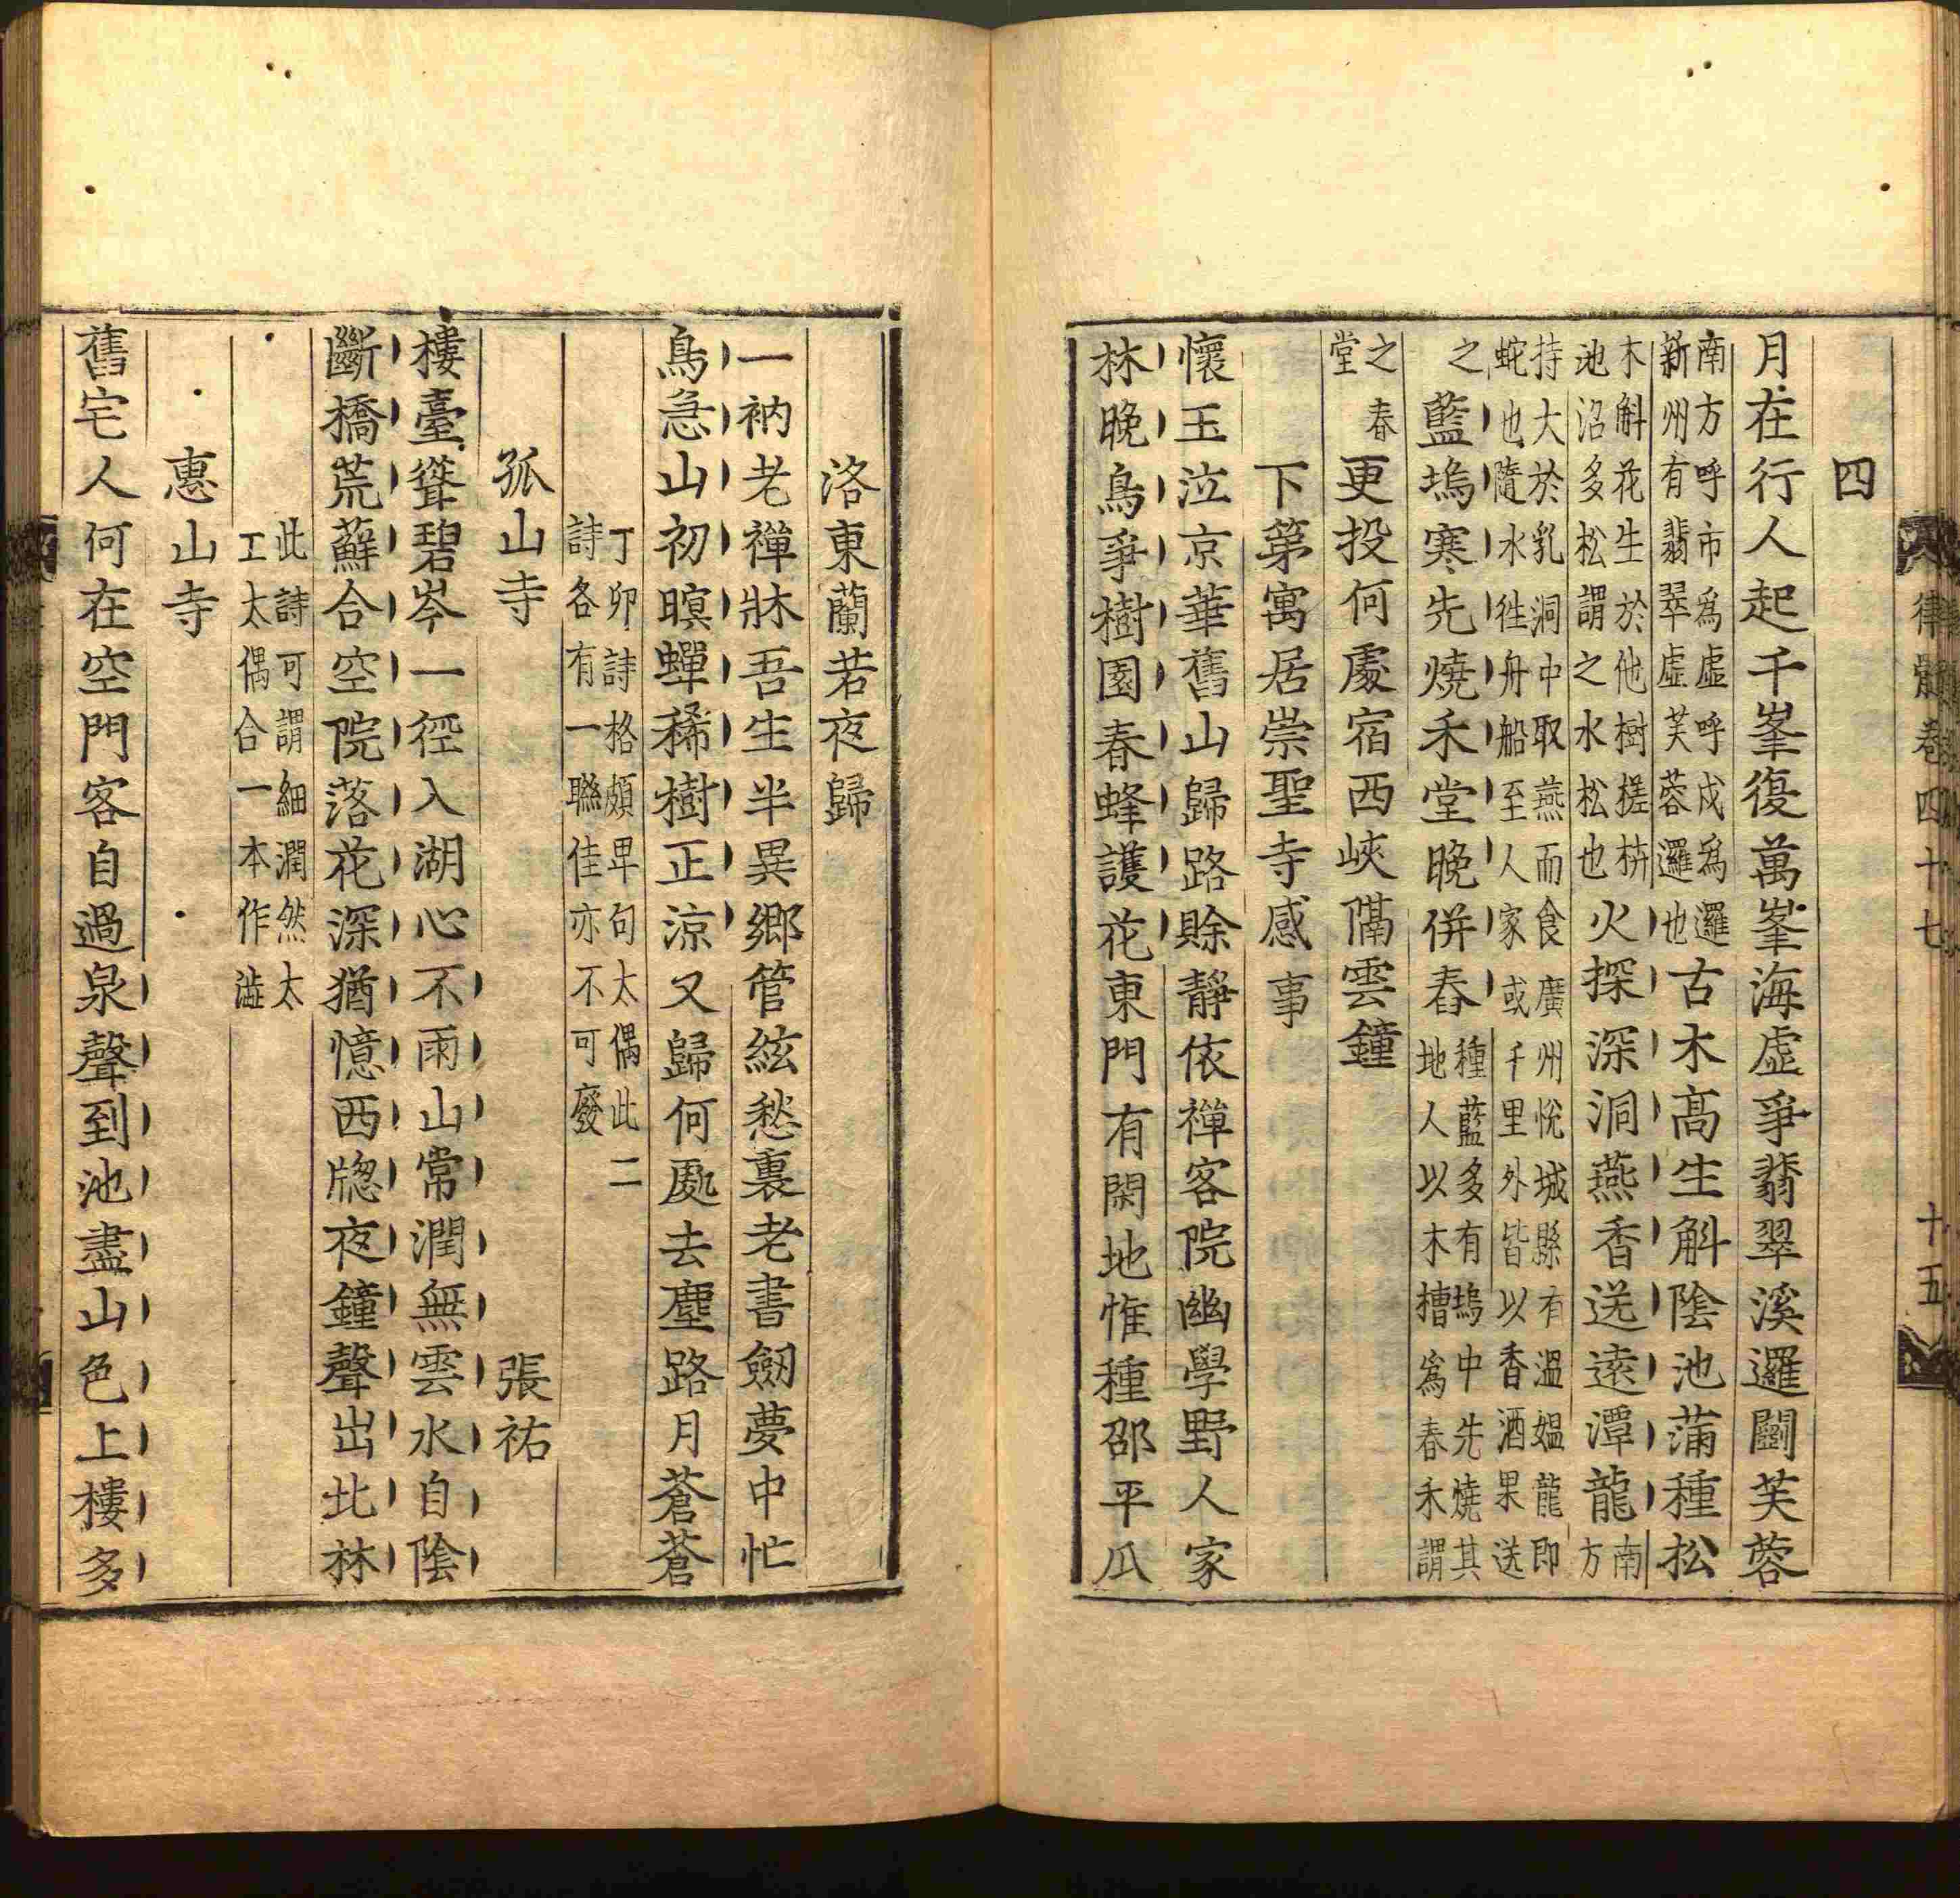 律髓卷四十七
十五
四
月在行人起千峯復萬峯海虛爭翡翠溪邏鬭芙蓉
南方呼市爲虛呼戍爲邏
新州有翡翠虛芙蓉邏也
古木高生斛陰池蒲種松
木斛花生於他樹槎枿
池沼多松謂之水松也
火探深洞燕香送遠潭龍
南
方
持大於乳洞中取燕而食廣州悅城縣有溫媼龍即
蛇也隨水徃舟船至人家或千里外皆以香酒果送
之
藍塢寒先燒禾堂晚併舂
種藍多有塢中先燒其
地人以木槽爲舂禾謂
之舂
堂
更投何處宿西峽隔雲鐘
下第寓居崇聖寺感事
懷玉泣京華舊山歸路賒靜依禪客院幽學野人家
林晚鳥爭樹園春蜂護花東門有閑地惟種邵平瓜
洛東蘭若夜歸
一衲老禪牀吾生半異鄉管絃愁裏老書劒夢中忙
鳥急山初暝蟬稀樹正凉又歸何處去塵路月蒼蒼
丁卯詩格頗卑句太偶此二
詩各有一聯佳亦不可廢
孤山寺
張祐
樓臺聳碧岑一徑入湖心不雨山常潤無雲水自陰
斷橋荒蘚合空院落花深猶憶西牎夜鐘聲出北林
此詩可謂細潤然太
工太偶合一本作澁
惠山寺
舊宅人何在空門客自過泉聲到池盡山色上樓多